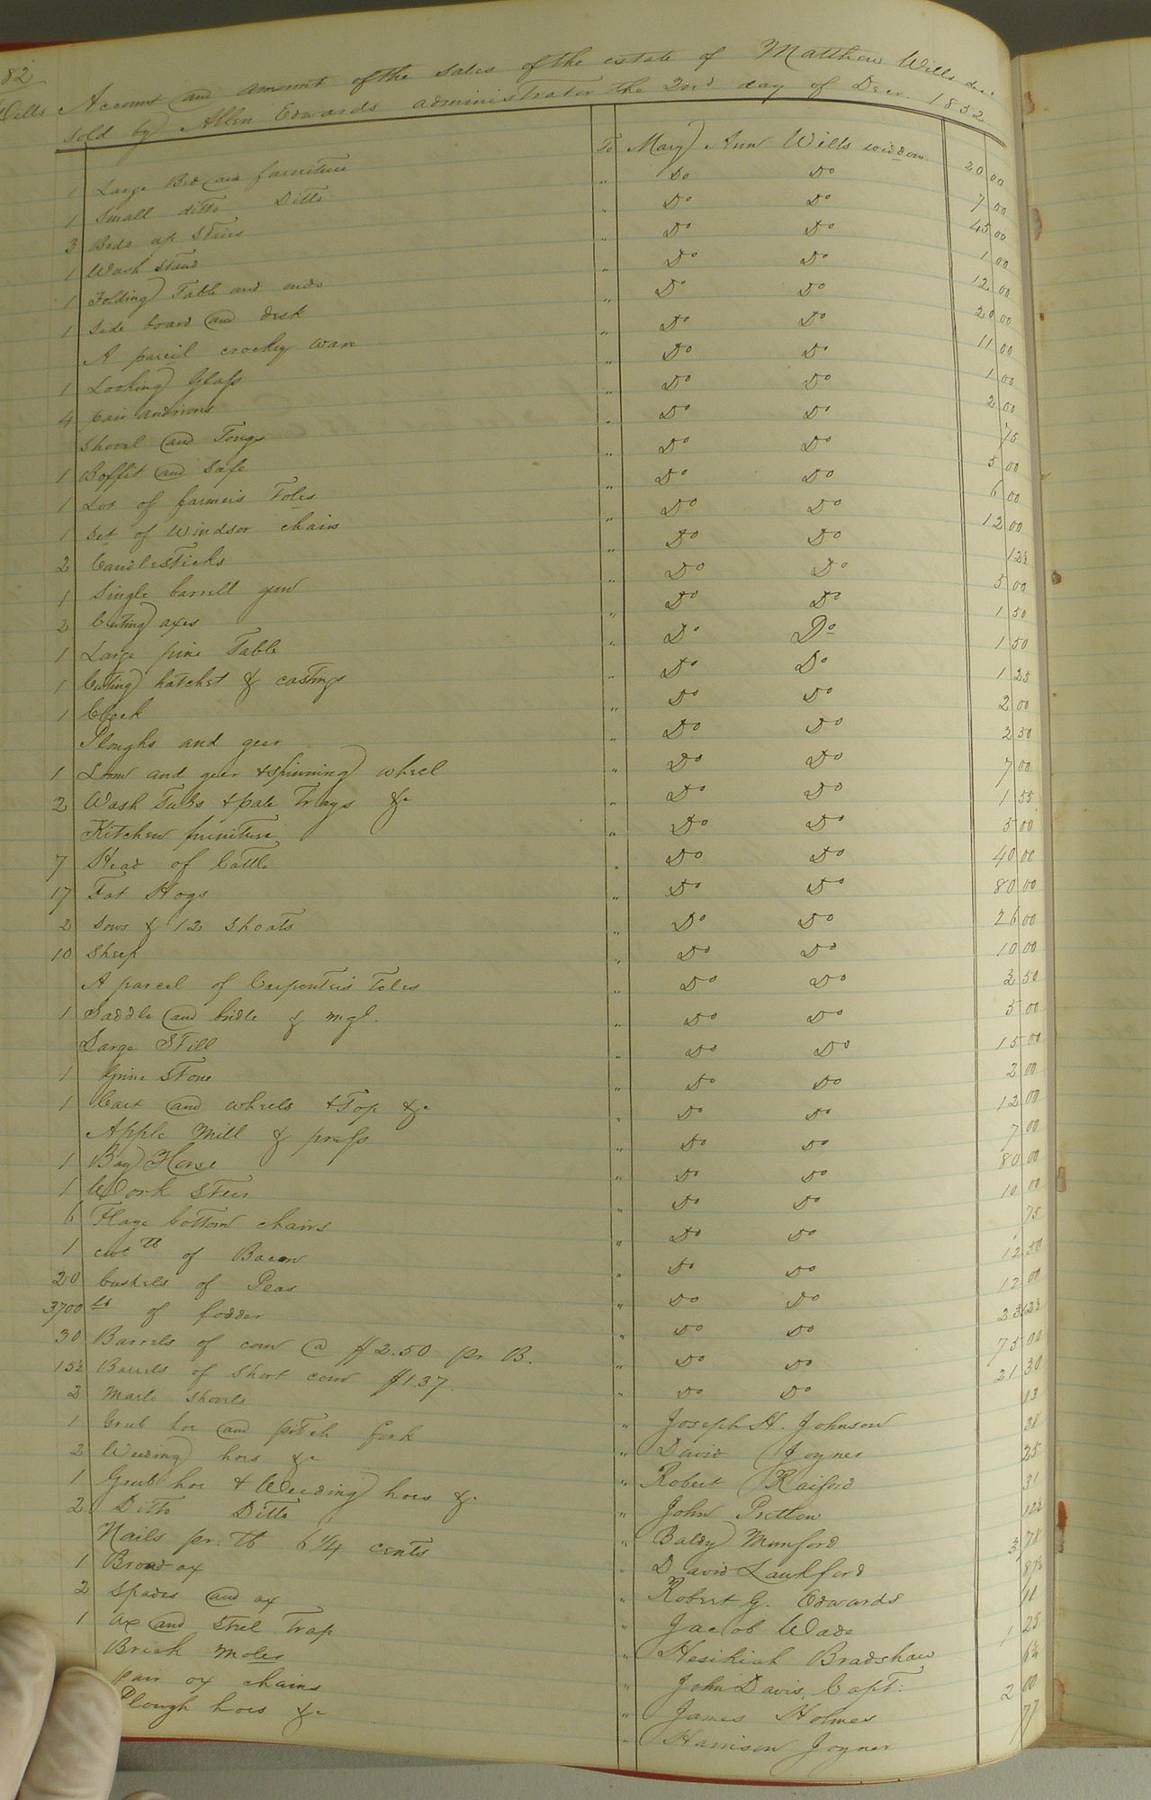 82
Wills Account and amount of the sales of the estate of Matthew Wills decd
sold by Allen Edwards administrator the 2nd day of Decr. 1852
1 Large Bed and furniture To Mary Ann Wills widow 20 00
1 Small ditto Ditto " Do Do 7 00
3 Beds up Stairs " Do Do 45 00
1 Wash stand " Do Do 1 00
1 Folding Table and ends " Do Do 12 00
1 Side board and desk " Do Do 20 00
A parcil crockry ware " Do Do 11 00
1 Looking Glass " Do Do 1 00
4 Pair andirons " Do Do 2 00
Shovel and Tongs " Do Do 75
1 Boffit and Safe " Do Do 5 00
1 Lot of farmers Toles " Do Do 6 00
1 Set of Windsor chairs " Do Do 12 00
2 Candlesticks " Do Do 12½
1 Single barrell gun " Do Do 5 00
2 Cuting axes " Do Do 1 50
1 Large pine Table " Do Do 1 50
1 Cuting hatchet & castings " Do Do 1 25
1 Clock " Do Do 2 00
Ploughs and geer " Do Do 2 50
1 Loom and geer & spinning wheel " Do Do 7 00
2 Wash Tubs & pale Trays &c " Do Do 1 55
Kitchen furniture " Do Do 5 00
7 Head of Cattle " Do Do 40 00
17 Fat Hogs " Do Do 80 00
2 Sows & 12 Shoats " Do Do 26 00
10 Sheep " Do Do 10 00
A parcel of Carpenters Toles " Do Do 2 50
1 Saddle and bridle & " Do Do 5 00
Large Still " Do Do 15 00
1 Grine Stone " Do Do 2 00
1 Cart and wheels & Top &c " Do Do 12 00
Apple Mill & press " Do Do 7 00
1 Bay Horse " Do Do 80 00
1 Work Steer " Do Do 10 00
6 Flage bottom chairs " Do Do 75
1 cwt lb of Bacon " Do Do 12 50
20 bushels of Peas " Do Do 12 00
3700 lb of fodder " Do Do
30 Barrels of corn @ $2.50 pr B. " Do Do 75 00
15½ Barrels of Short corn $1.37 " Do Do 21 30
2 Marle Shovels " Do Do 13
1 Grub hoe and pitch fork " Joseph H. Johnson
2 Weeding hoes &c " David Joyner 25
1 Grub hoe & Weeding hoes &c " Robert Raiford 31
2 Ditto Ditto " John Pretlow 12½
Nails pr. lb 6¼ cents " Baldy Munford 3 78
1 Broad ax " David Lankford 87½
2 Spades and ax " Robert G. Edwards 11
1 ax and Steel Trap " Jacob Wade 1 25
Brick Moles " Hesikiah Bradshaw 6¼
Pair ox chains " John Davis, Capt. 2 00
Plough hoes &c " James Holmes 77
" Harrison Joyner